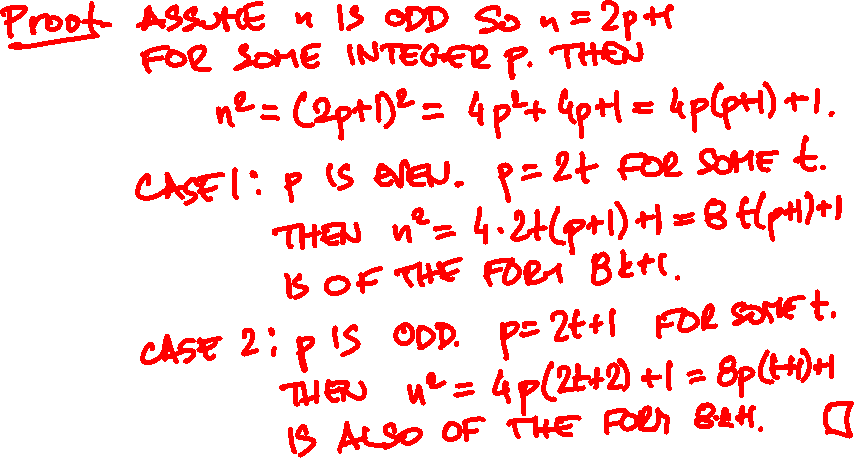 Proof. ASSUME n IS ODD SO n = 2p+1
FOR SOME INTEGER p. THEN
n² = (2p+1)² = 4p²+4p+1 = 4p(p+1)+1.
CASE 1: p IS EVEN. p=2t FOR SOME t.
THEN n² = 4·2t(p+1)+1 = 8t(p+1)+1
IS OF THE FORM 8k+1.
CASE 2: p IS ODD. p=2t+1 FOR SOME t.
THEN n² = 4p(2t+2)+1 = 8p(t+1)+1
IS ALSO OF THE FORM 8k+1. □